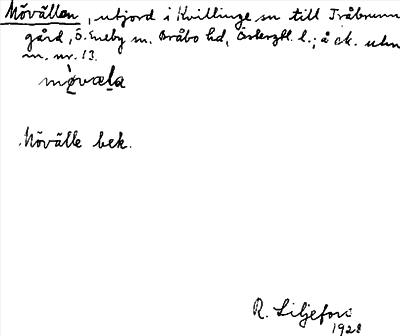 Mövällen, utjord i Kvillinge sn till Tråbrunn
gård, Ö. Eneby sn. Bråbo hd, Östergtl. l.; å ek. utm
m. nr. 13.
mövæla
Mövälle bek.
R. Liljefors
1928